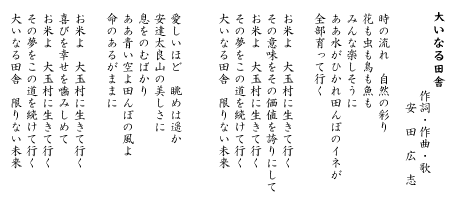 大いなる田舎
作詞・作曲・歌
安田広志
時の流れ　自然の彩り
花も虫も鳥も魚も
みんな楽しそうに
ああ水がひかれ田んぼのイネが
全部育って行く
お米よ　大玉村に生きて行く
その意味をその価値を誇りにして
お米よ　大玉村に生きて行く
その夢をこの道を続けて行く
大いなる田舎　限りない未来
愛しいほど　眺めは遥か
安達太良山の美しさに
息をのむばかり
ああ青い空よ田んぼの風よ
命のあるがままに
お米よ　大玉村に生きて行く
喜びを幸せを噛みしめて
お米よ　大玉村に生きて行く
その夢をこの道を続けて行く
大いなる田舎　限りない未来